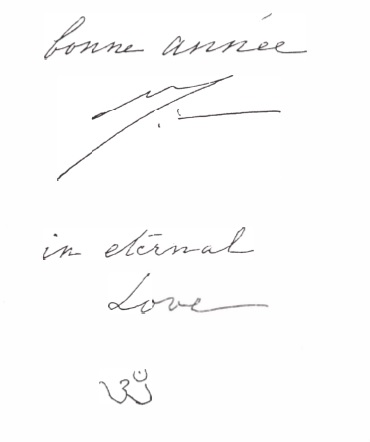 bonne année
in eternal
Love
ॐ